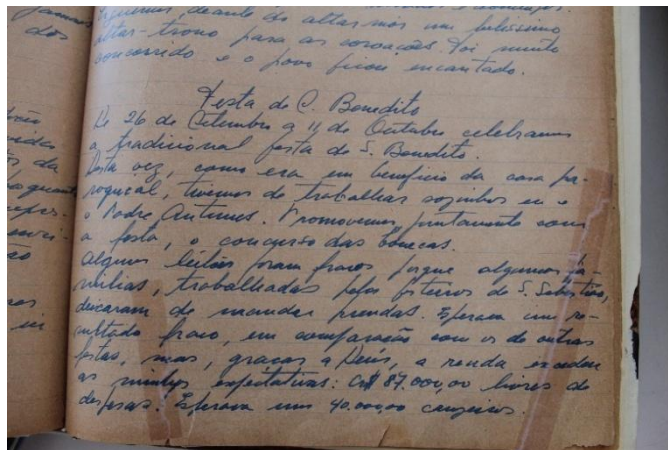 James
dos
fizemos deante do altar-mór um belissimo
altar-trono para as coroações. Foi muito
concorrido e o povo ficou encantado.
Festa de S. Benedito
De 26 de Setembro a 11 de Outubro celebramos
a tradicional festa de S. Benedito.
Desta vez, como era em beneficio da casa pa-
roquial, tivemos de trabalhar sozinhos eu e
o Padre Antunes. Promovemos, juntamente com
a festa, o congresso das bonecas.
Alguns leilões foram fracos porque algumas fa-
milias, trabalhadas pelos festeiros de S. Sebastião,
deixaram de mandar prendas. Esperava um re-
sultado fraco, em comparação com os de outras
festas, mas, graças a Deus, a renda excedeu
as minhas expectativas: Cr$ 87.000,00 livres de
despesas. Esperava uns 40.000,00 cruzeiros.